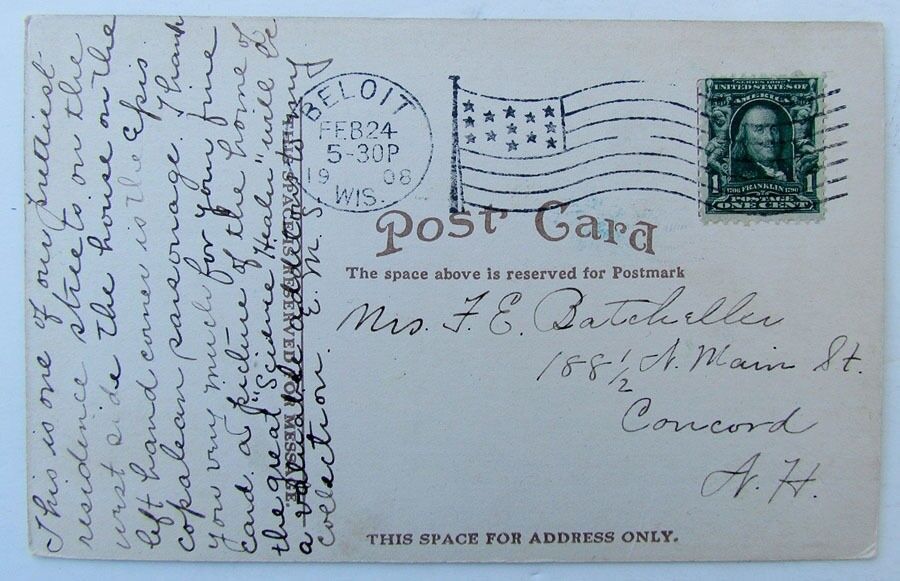 This is one of our prettiest
residence streets on the
west side The house on the
left hand corner is the Epis
copalean parsonage. Thank
you very much for your fine
card. a picture of the home of
the great "Science Healer" will be
a valuable addition to my
collection. E. M. S.
THIS SPACE IS RESERVED FOR MESSAGE.
BELOIT
FEB 24
5-30P
1908
WIS.
SERIES 1902
UNITED STATES OF
AMERICA
1 1706 FRANKLIN 1790 1
POSTAGE
ONE CENT
Post Card
The space above is reserved for Postmark
Mrs. F. E. Batcheller
188 1/2 N. Main St.
Concord
N. H.
THIS SPACE FOR ADDRESS ONLY.